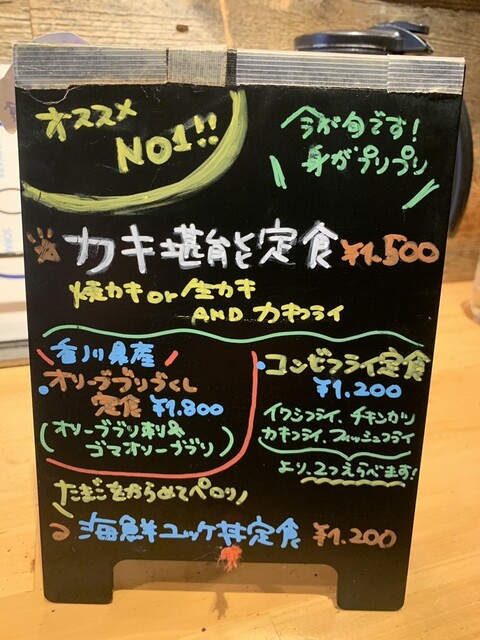 オススメ
NO1!!
今が旬です!
身がプリプリ
カキ堪能定食 ¥1,500
焼カキ or 生カキ
AND カキフライ
香川県産
オリーブブリづくし
定食 ¥1,800
(オリーブブリ刺し&
ゴマオリーブブリ)
コンビフライ定食
¥1,200
イワシフライ、チキンカツ
カキフライ、フィッシュフライ
より、2つえらべます!
たまごをからめてペロリ!
海鮮ユッケ丼定食 ¥1,200